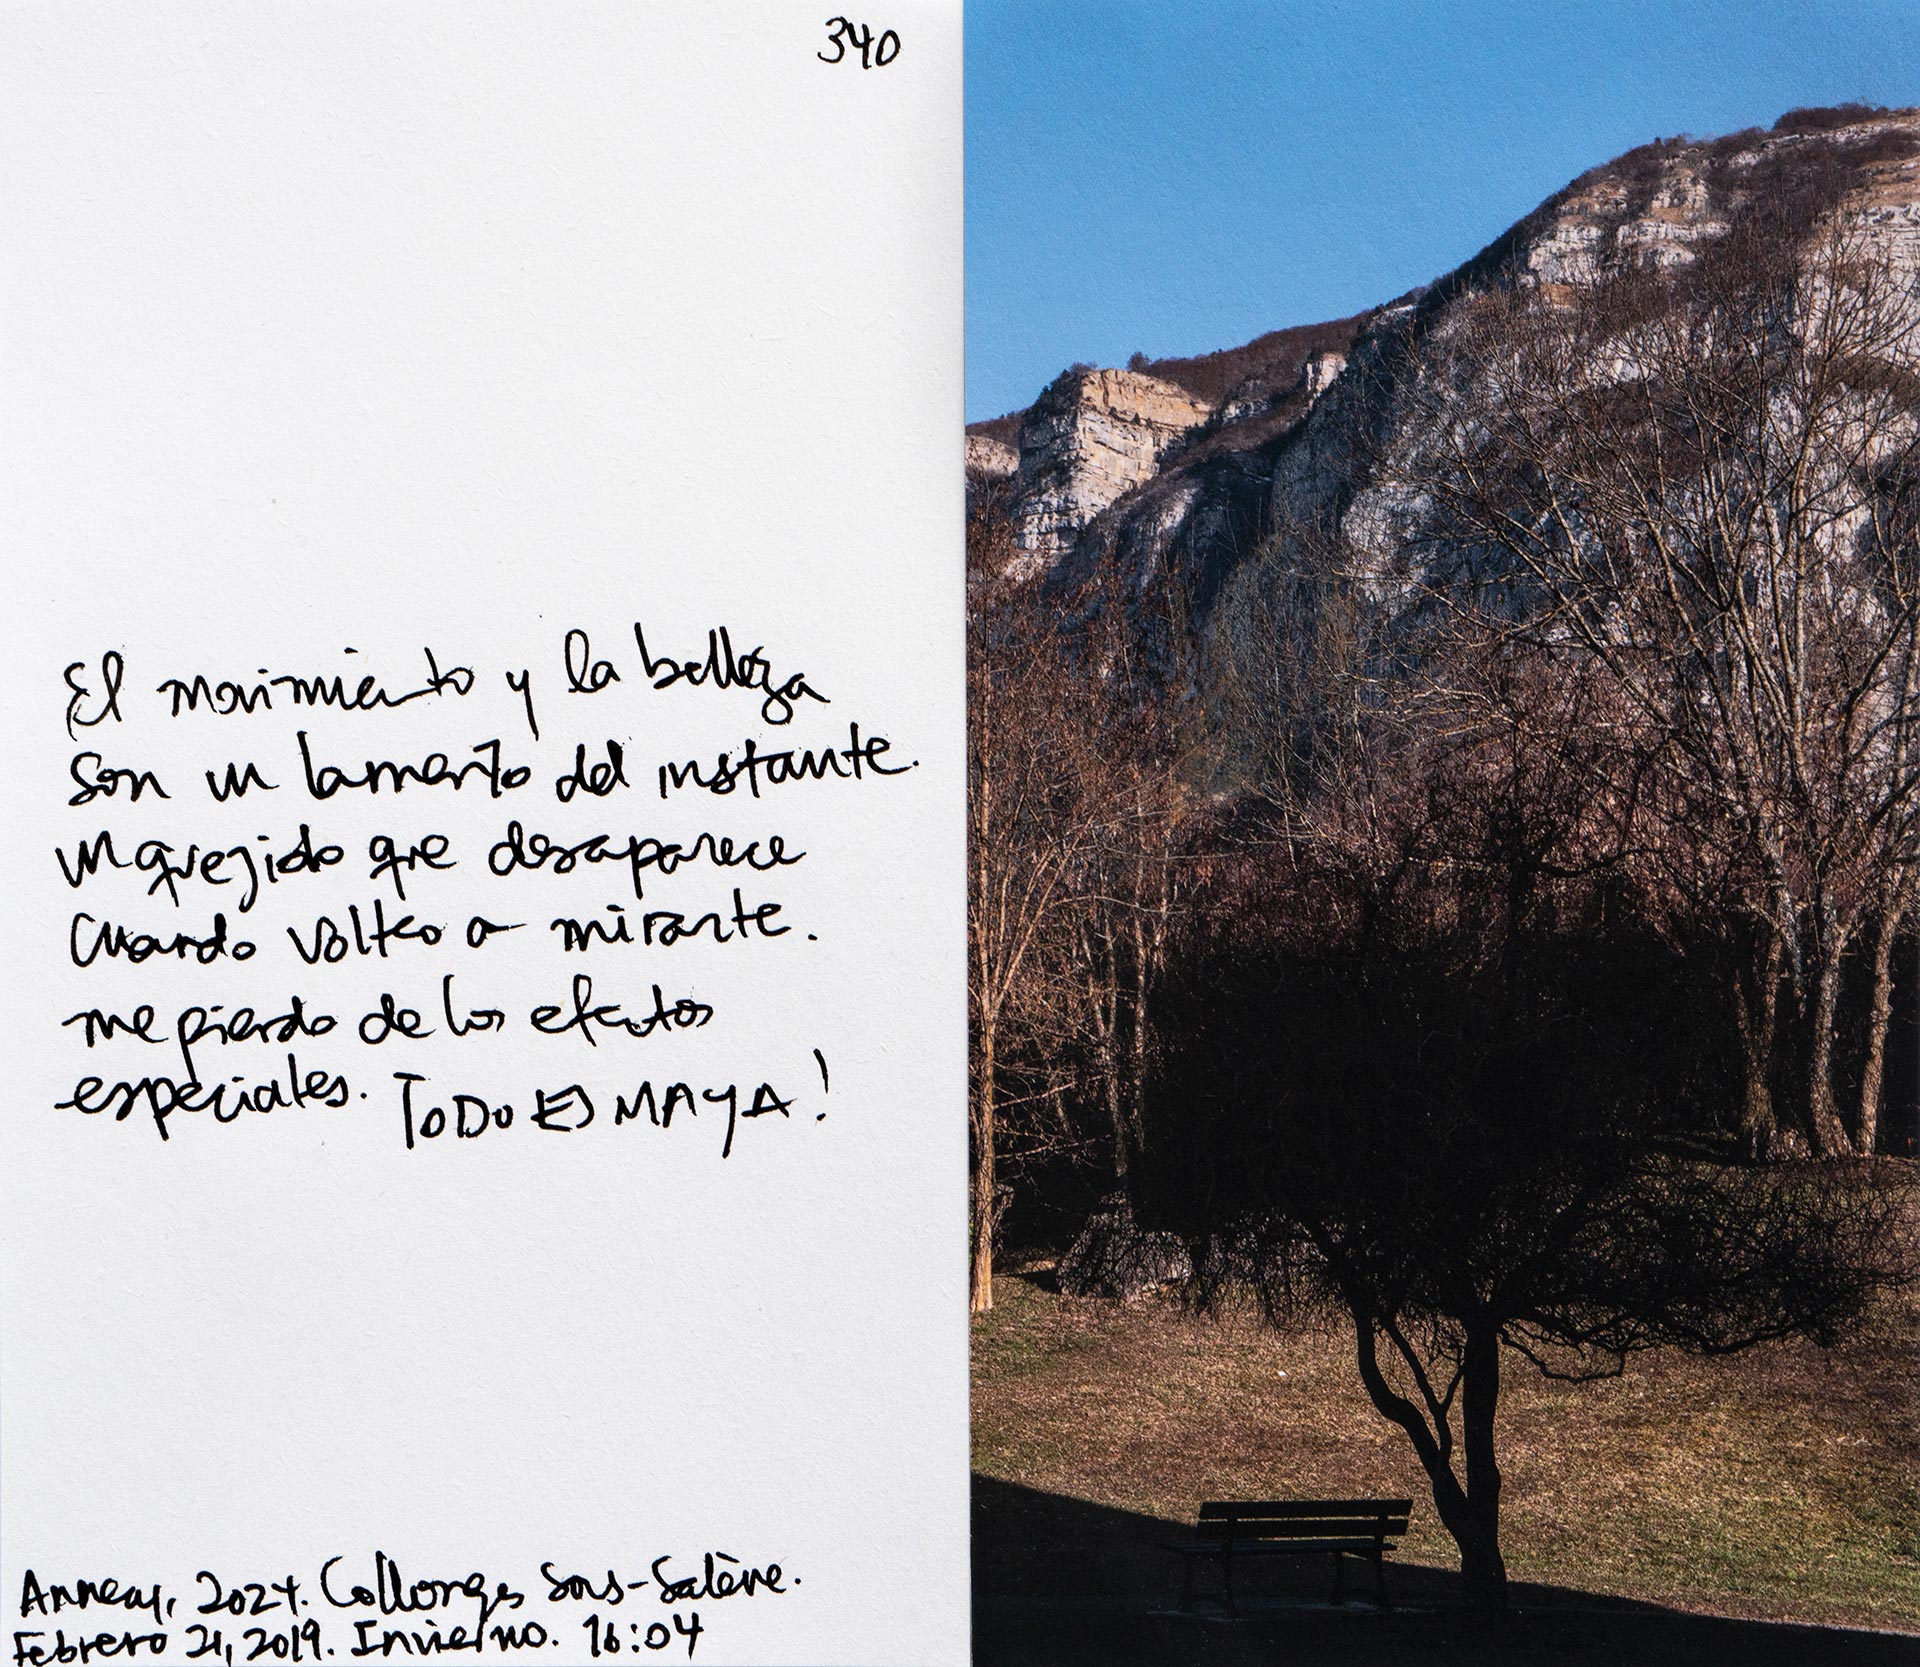 340
El movimiento y la belleza
son un lamento del instante.
un quejido que desaparece
cuando volteo a mirarte.
me pierdo de los efectos
especiales. TODO ES MAYA!
Annecy, 2024. Collonges Sous-Salève.
Febrero 21, 2019. Invierno. 16:04